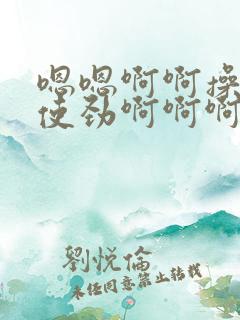 嗯嗯啊啊操
使劲啊啊啊
劉悅倫
未经同意禁止转载